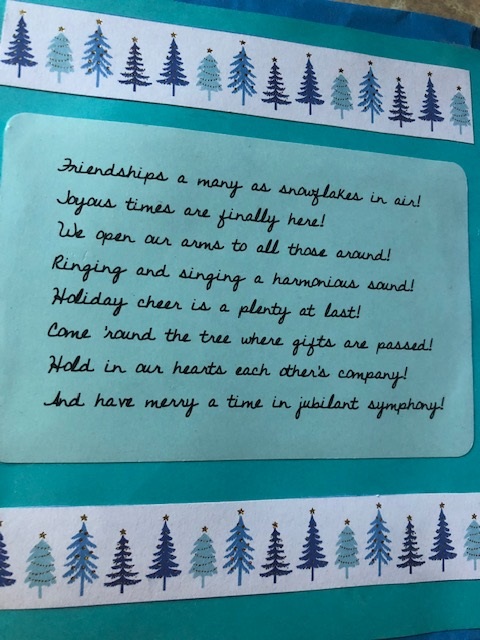 Friendships a many as snowflakes in air!
Joyous times are finally here!
We open our arms to all those around!
Ringing and singing a harmonious sound!
Holiday cheer is a plenty at last!
Come 'round the tree where gifts are passed!
Hold in our hearts each other's company!
And have merry a time in jubilant symphony!